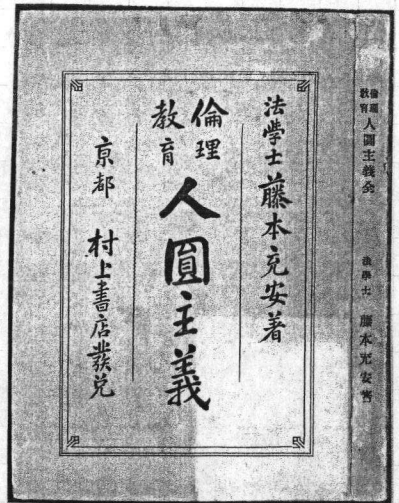 法學士 藤本充安著
倫理
教育
人圓主義
京都 村上書店發兌
倫理
教育
人圓主義全
法學士 藤本充安著